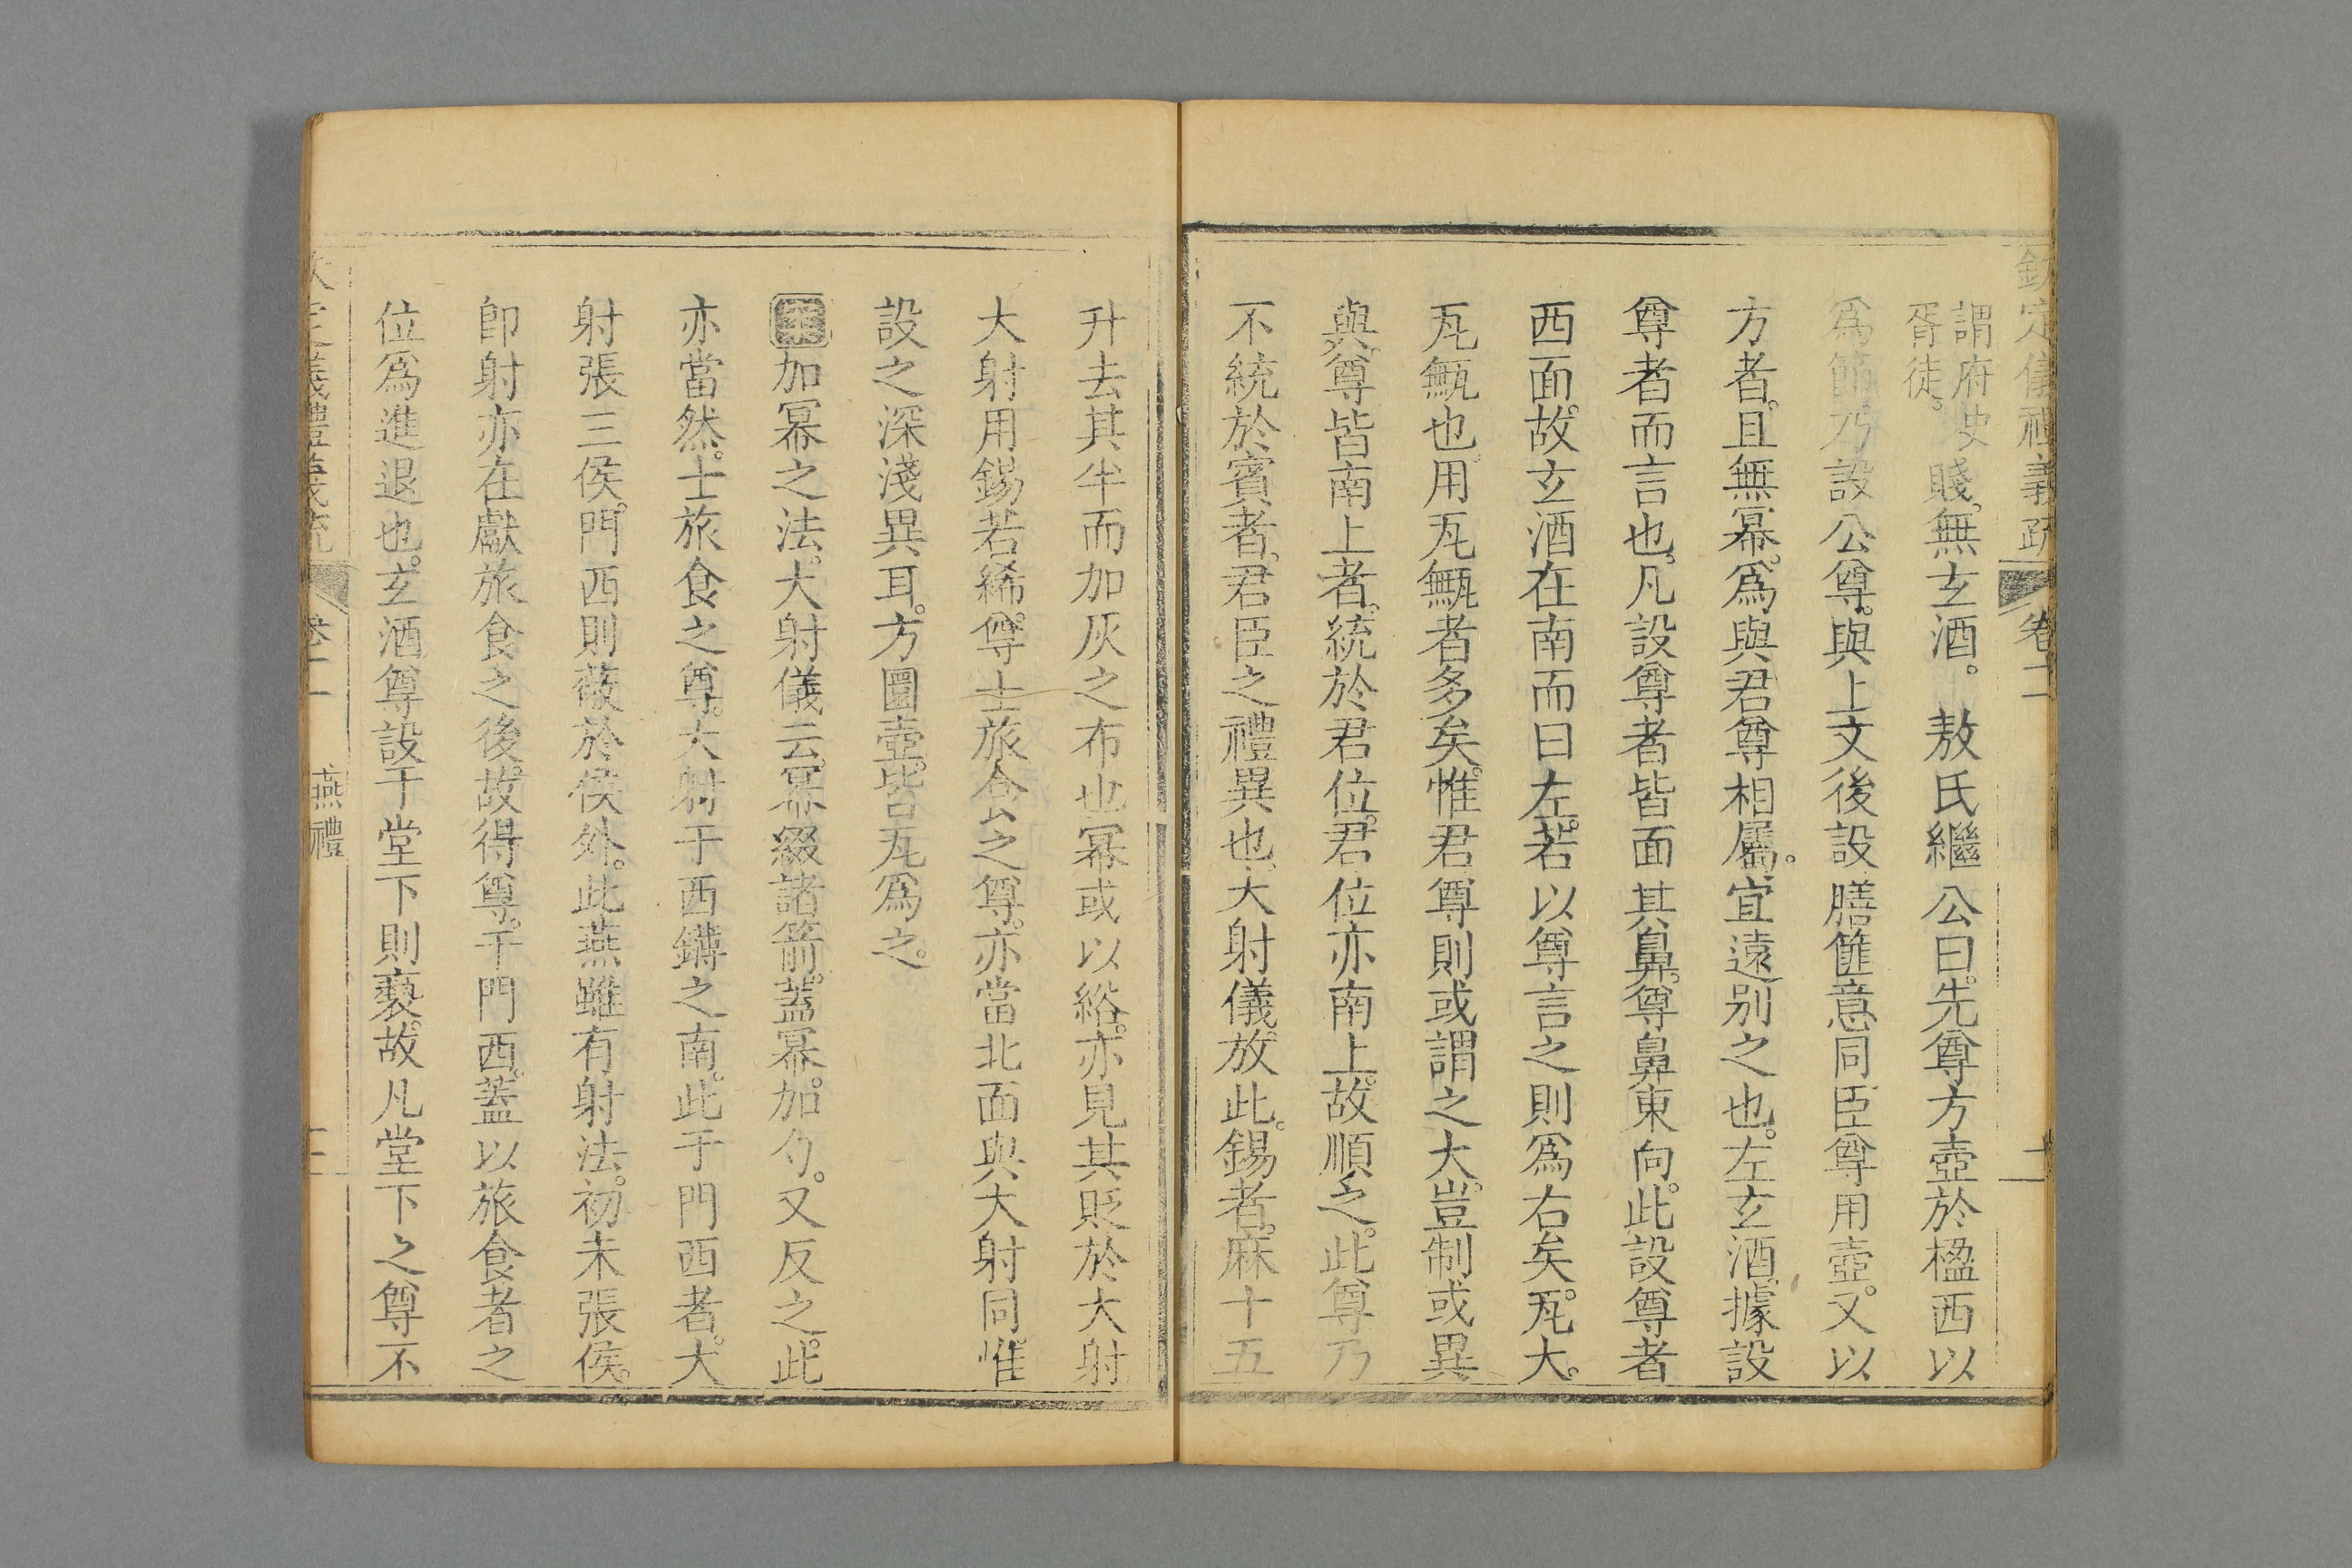 欽定儀禮義疏 卷十二
謂府史
胥徒。
賤。無玄酒。敖氏繼公曰。先尊方壺於楹西以
爲節。乃設公尊。與上文後設膳篚意同。臣尊用壺。又以
方者。且無冪。爲與君尊相屬。宜遠別之也。左玄酒。據設
尊者而言也。凡設尊者皆面其鼻。尊鼻東向。此設尊者
西面。故玄酒在南而曰左。若以尊言之則爲右矣。瓦大。
瓦甒也。用瓦甒者多矣。惟君尊則或謂之大。豈制或異
與。尊皆南上者。統於君位。君位亦南上。故順之。此尊乃
不統於賓者。君臣之禮異也。大射儀放此。錫者。麻十五
升去其半而加灰之布也。冪或以綌。亦見其貶於大射
大射用錫若絺。尊士旅食之尊。亦當北面與大射同。惟
設之深淺異耳。方圜壺。皆瓦爲之。
加冪之法。大射儀云。冪綴諸箭。蓋冪。加勺。又反之。此
亦當然。士旅食之尊。大射于西鑮之南。此于門西者。大
射張三侯。門西則蔽於侯外。此燕雖有射法。初未張侯。
即射亦在獻旅食之後。故得尊。于門西。蓋以旅食者之
位爲進退也。玄酒尊設于堂下則褻。故凡堂下之尊不
欽定儀禮義疏 卷十二 燕禮